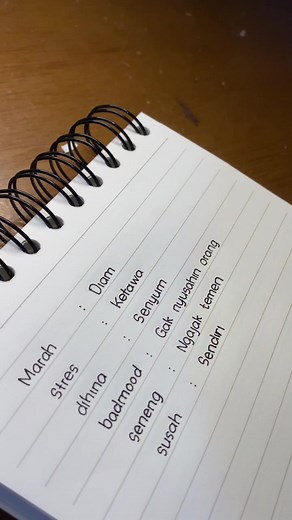 Marah : Diam
Stres : Ketawa
dihina : Senyum
badmood : Gak nyusahin orang
seneng : Ngajak temen
susah : Sendiri